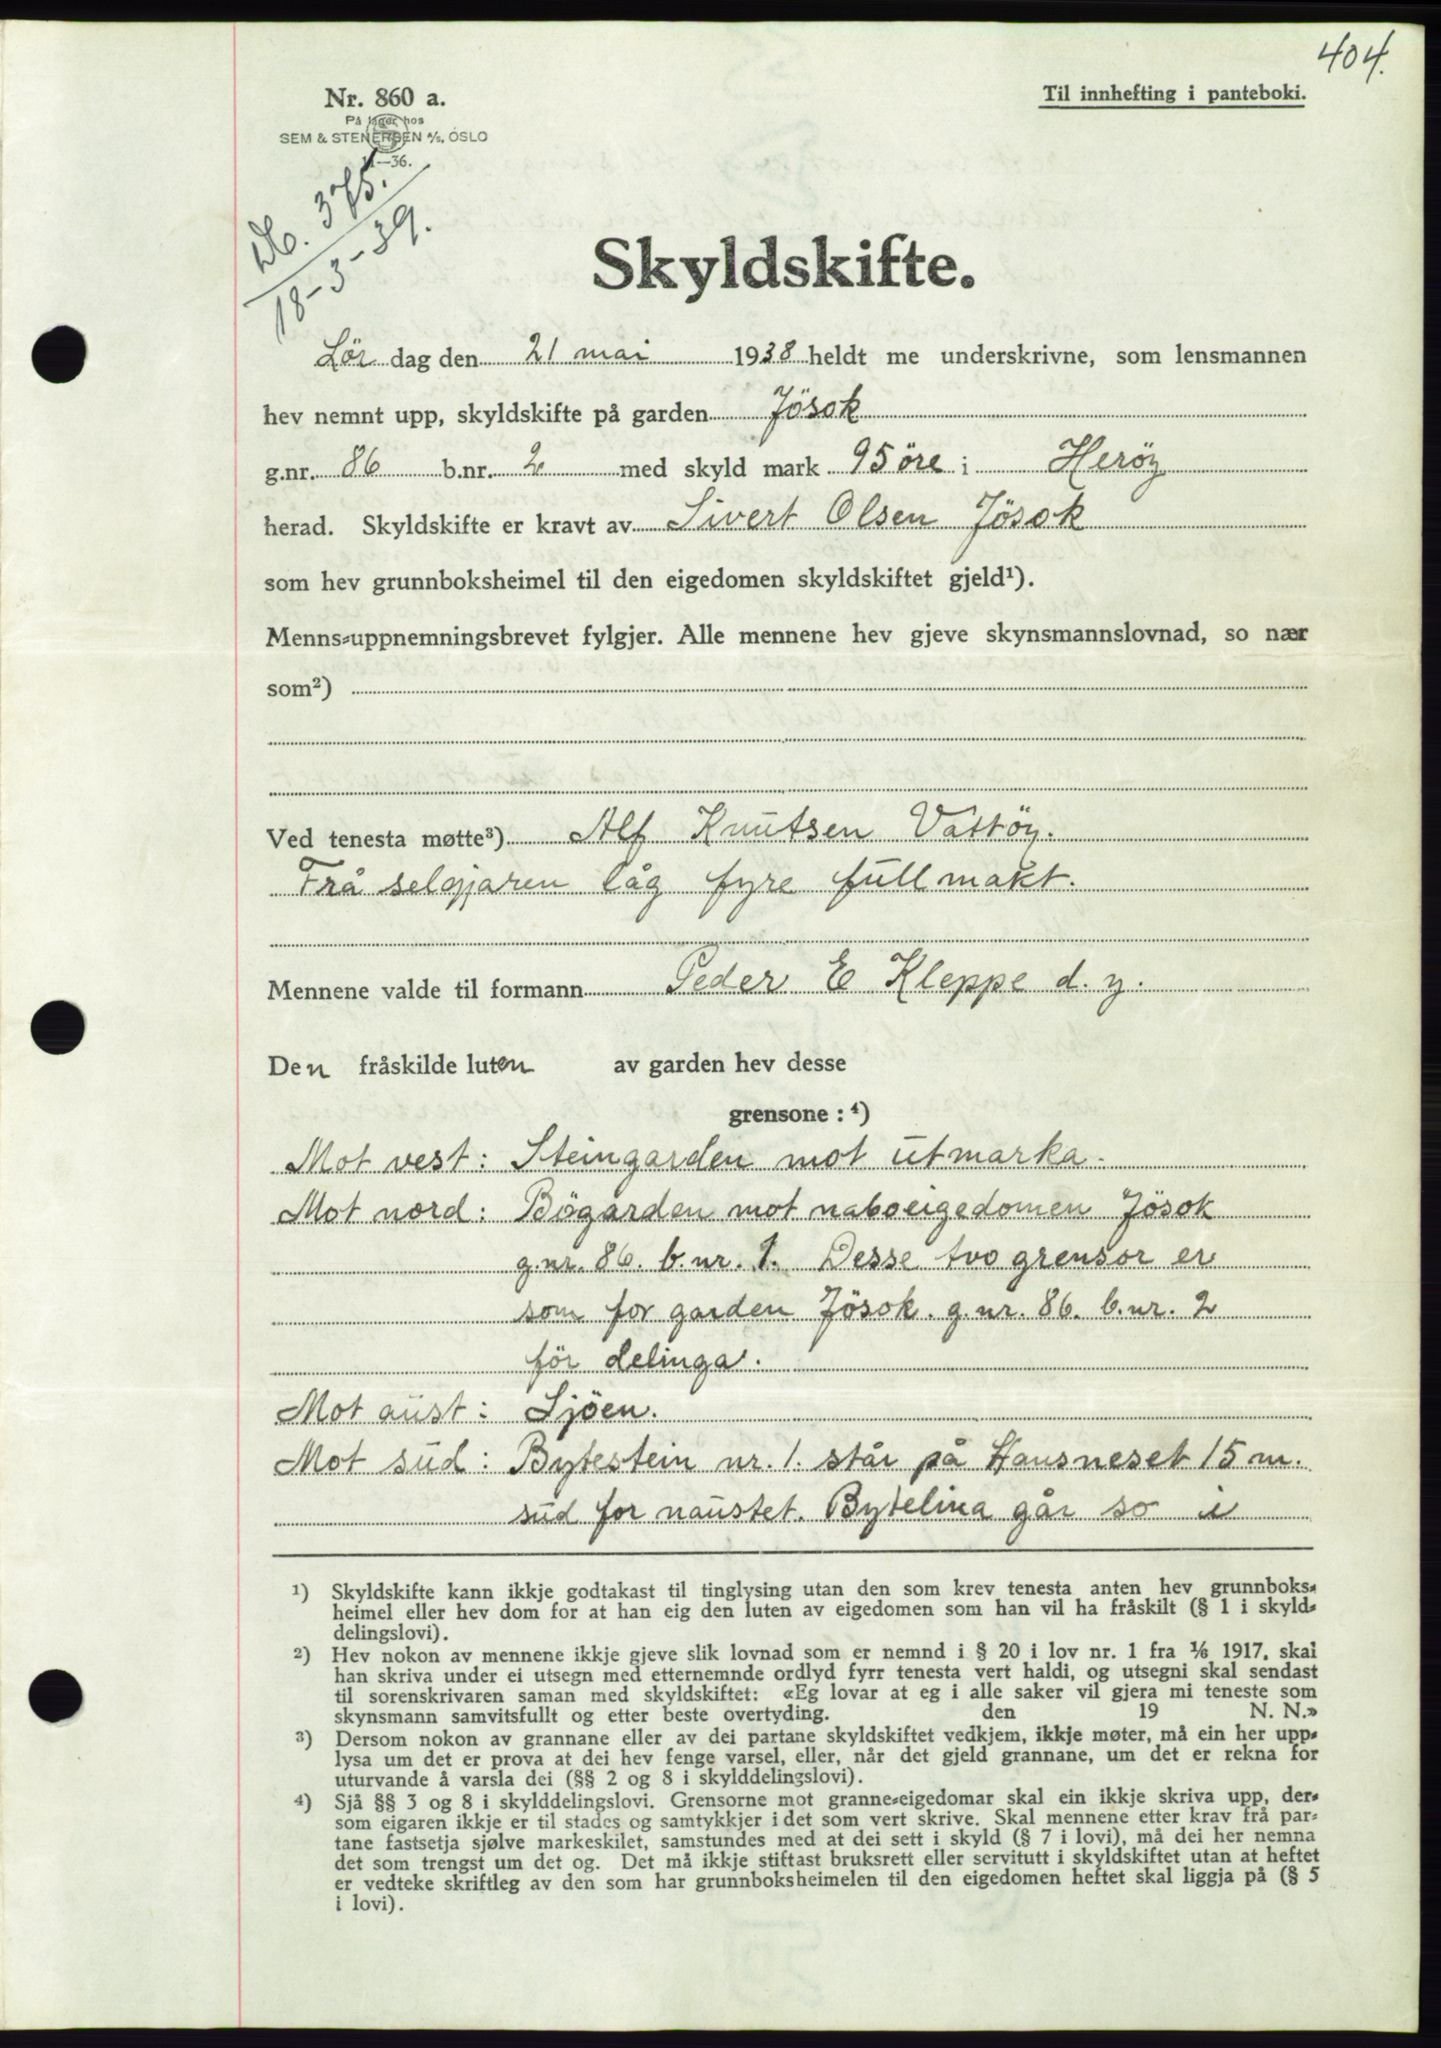 404.
Nr. 860 a.
Til innhefting i panteboki.
På lager hos
SEM & STENERSEN A/S, OSLO
11—36.
Db. 375.
18-3-39.
Skyldskifte.
Lör dag den 21 mai 1938 heldt me underskrivne, som lensmannen
hev nemnt upp, skyldskifte på garden Jösok
g.nr. 86 b.nr. 2 med skyld mark 95 öre i Heröy
herad. Skyldskifte er kravt av Sivert Olsen Jösok
som hev grunnboksheimel til den eigedomen skyldskiftet gjeld¹).
Menns-uppnemningsbrevet fylgjer. Alle mennene hev gjeve skynsmannslovnad, so nær
som²)
Ved tenesta møtte³) Alf Knutsen Vattöy.
Frå seljaren låg fyre fullmakt.
Mennene valde til formann Peder E Kleppe d. y.
Den fråskilde luten av garden hev desse
grensone : ⁴)
Mot vest: Steingarden mot utmarka.
Mot nord: Bögarden mot naboeigedomen Jösok
g.nr. 86. b.nr. 1. Desse tvo grensor er
som for garden Jösok. g.nr. 86. b.nr. 2
för delinga.
Mot aust: Sjöen.
Mot sud: Bytestein nr. 1. står på Hausneset 15 m.
sud for naustet. Bytelina går so i
¹) Skyldskifte kann ikkje godtakast til tinglysing utan den som krev tenesta anten hev grunnboks-
heimel eller hev dom for at han eig den luten av eigedomen som han vil ha fråskilt (§ 1 i skyld-
delingslovi).
²) Hev nokon av mennene ikkje gjeve slik lovnad som er nemnd i § 20 i lov nr. 1 fra 1/6 1917, skal
han skriva under ei utsegn med etternemnde ordlyd fyrr tenesta vert haldi, og utsegni skal sendast
til sorenskrivaren saman med skyldskiftet: «Eg lovar at eg i alle saker vil gjera mi teneste som
skynsmann samvitsfullt og etter beste overtyding. den 19 N. N.»
³) Dersom nokon av grannane eller av dei partane skyldskiftet vedkjem, ikkje møter, må ein her upp-
lysa um det er prova at dei hev fenge varsel, eller, når det gjeld grannane, um det er rekna for
uturvande å varsla dei (§§ 2 og 8 i skylddelingslovi).
⁴) Sjå §§ 3 og 8 i skylddelingslovi. Grensorne mot granne-eigedomar skal ein ikkje skriva upp, der-
som eigaren ikkje er til stades og samtykkjer i det som vert skrive. Skal mennene etter krav frå par-
tane fastsetja sjølve markeskilet, samstundes med at dei sett i skyld (§ 7 i lovi), må dei her nemna
det som trengst um det og. Det må ikkje stiftast bruksrett eller servitutt i skyldskiftet utan at heftet
er vedteke skriftleg av den som har grunnboksheimelen til den eigedomen heftet skal liggja på (§ 5
i lovi).